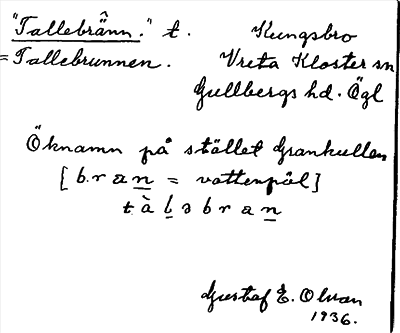 "Tallebränn." t. Kungsbro
= Tallebrunnen. Vreta Kloster sn
Gullbergs hd. Ögl
Öknamn på stället Grankullen
[bran = vattenpöl]
tàləbran
Gustaf E. Olsson
1936.